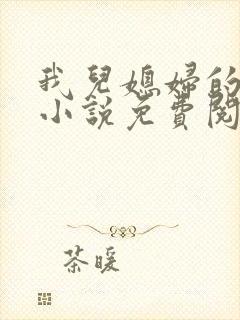 我兒媳婦的
小說免費閱
茶暖